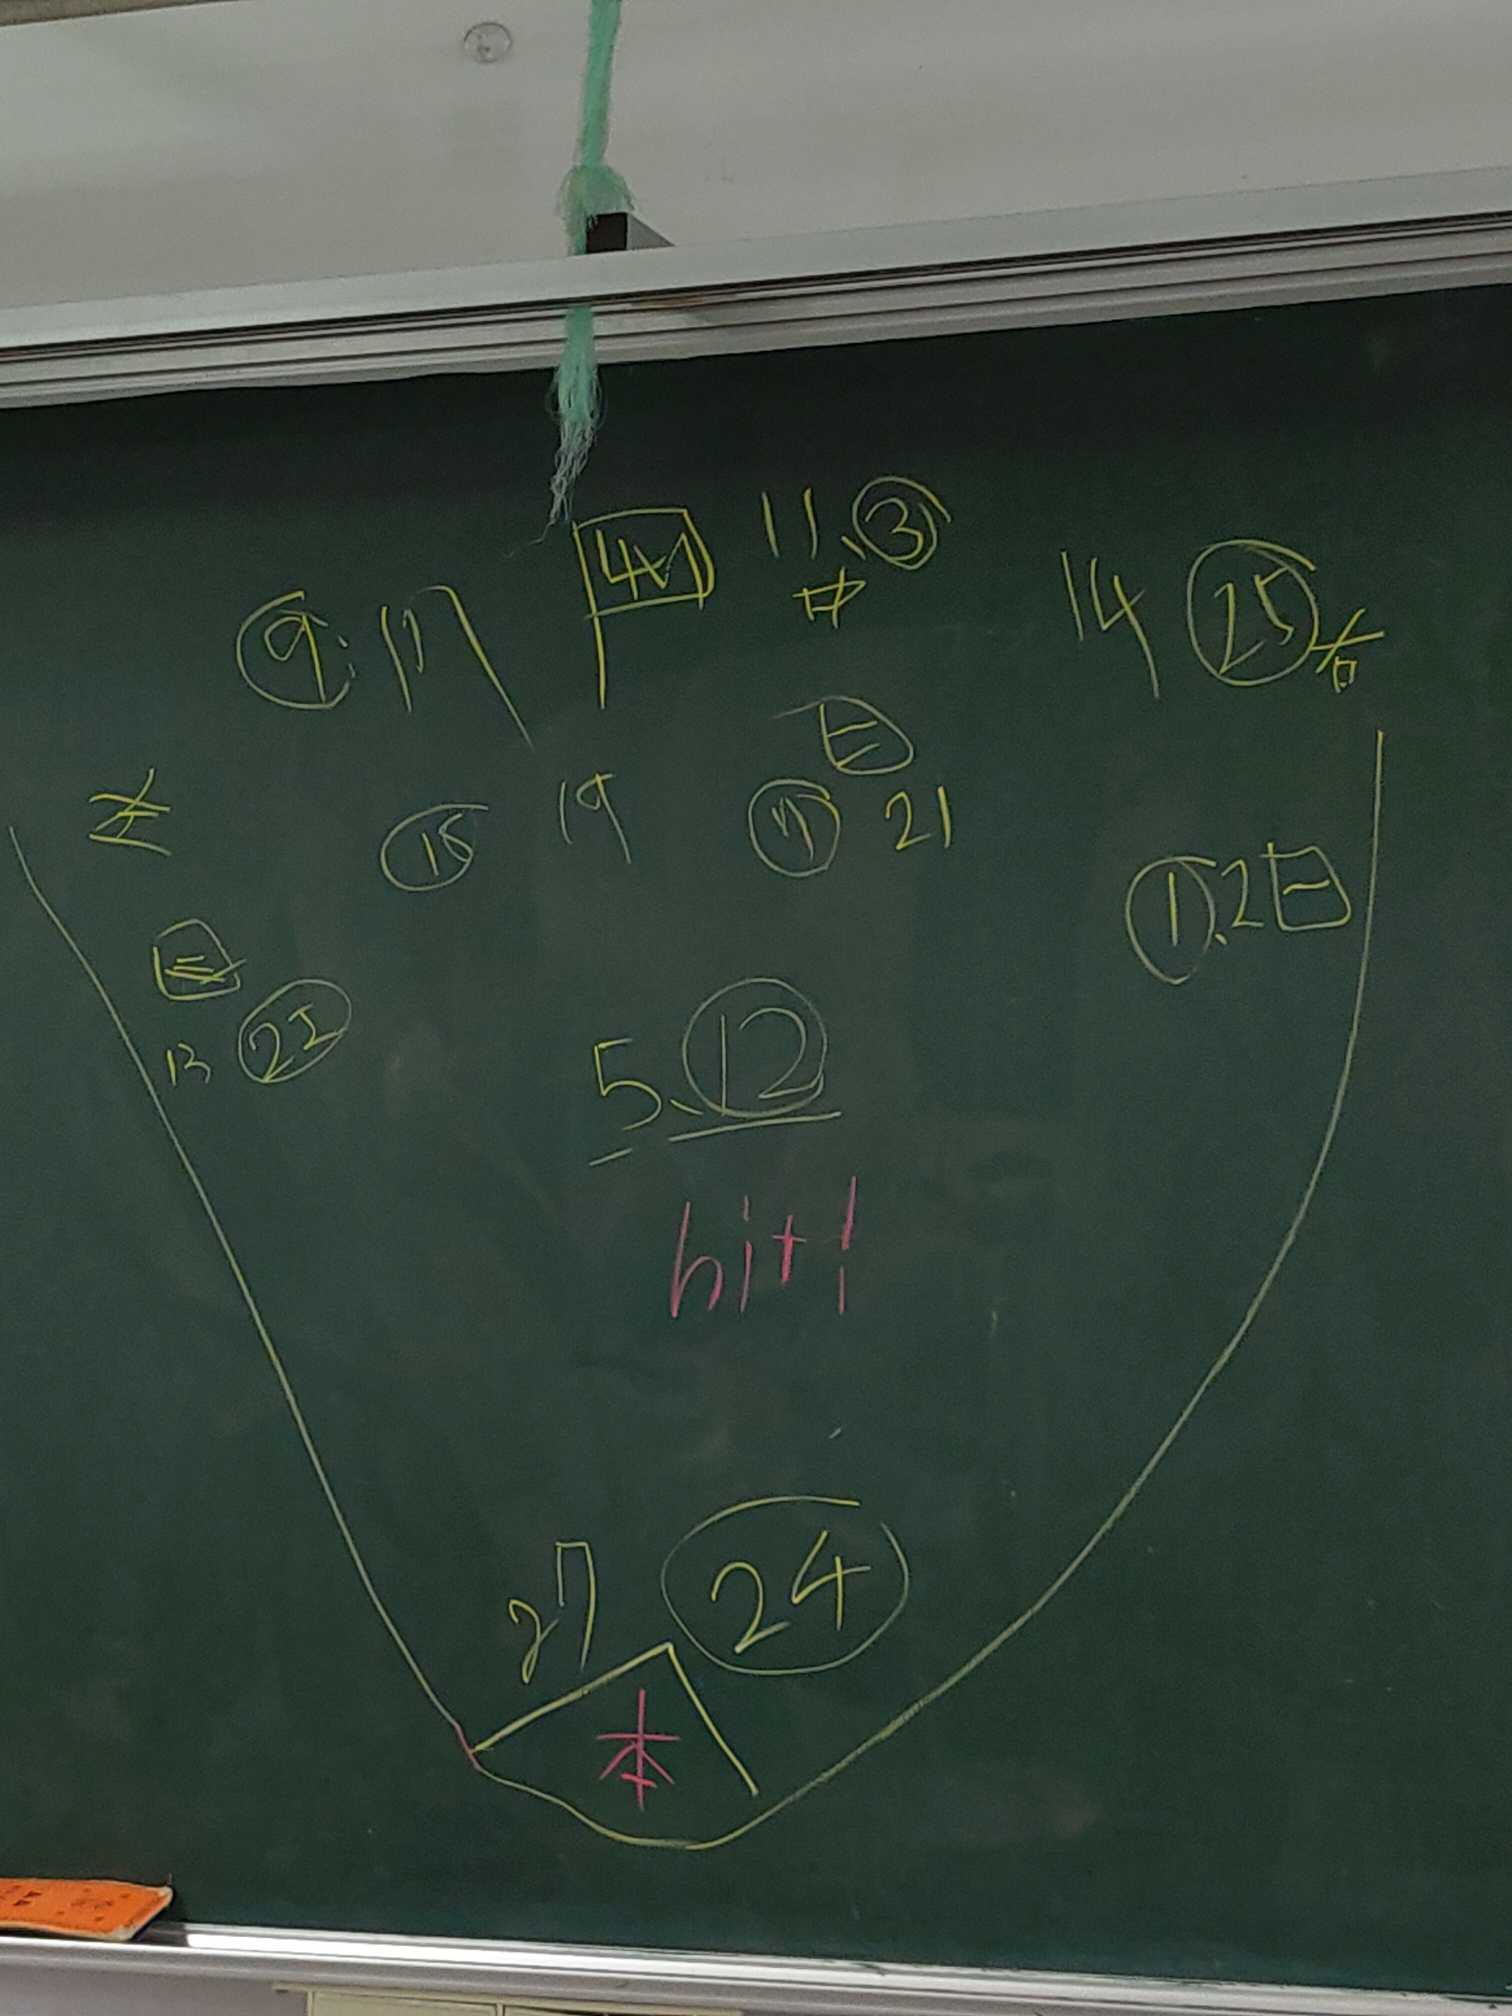 11、③
14 ㉕ 右
⑨ 17
中
左
⑮ 19
二
⑦ 21
①、2 一
三
13
5、⑫
hit!
27 ㉔
本